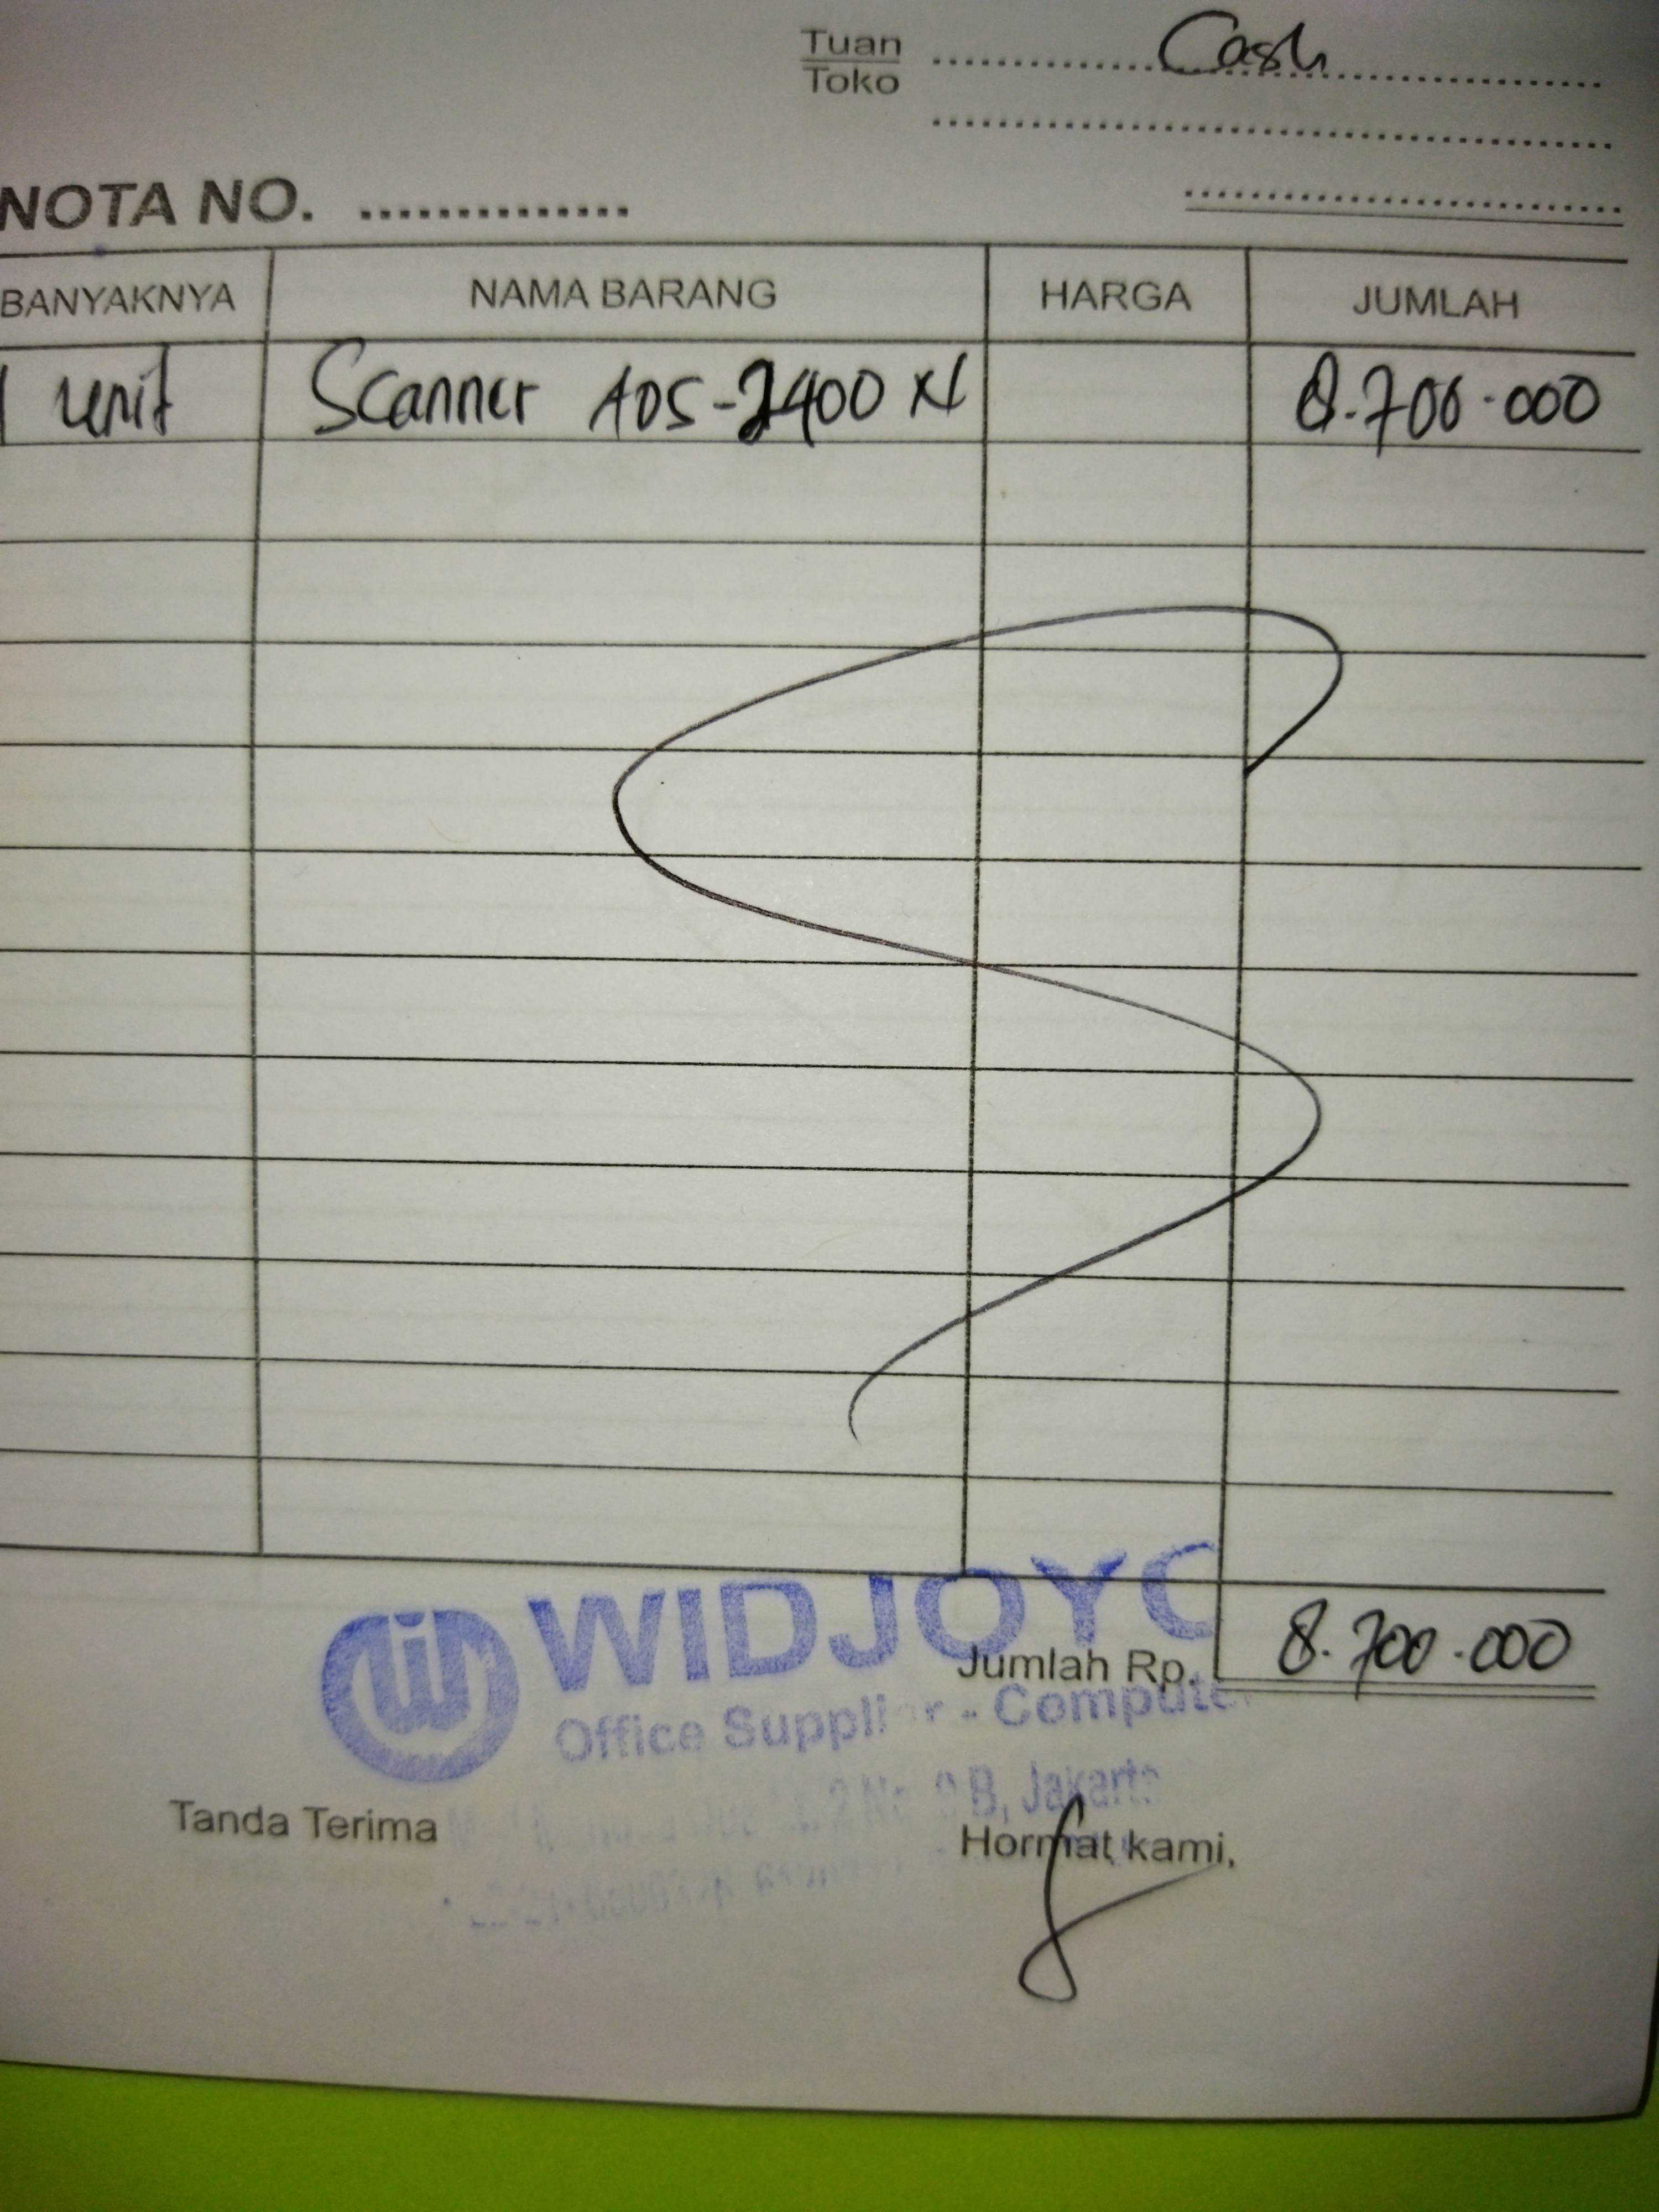 Tuan
Toko
Cash
NOTA NO.
BANYAKNYA NAMA BARANG HARGA JUMLAH
1 unit Scanner ADS-2400 N 8.700.000
WIDJOYO
Jumlah Rp. 8.700.000
Office Supplier - Computer
B, Jakarta
Tanda Terima Hormat kami,